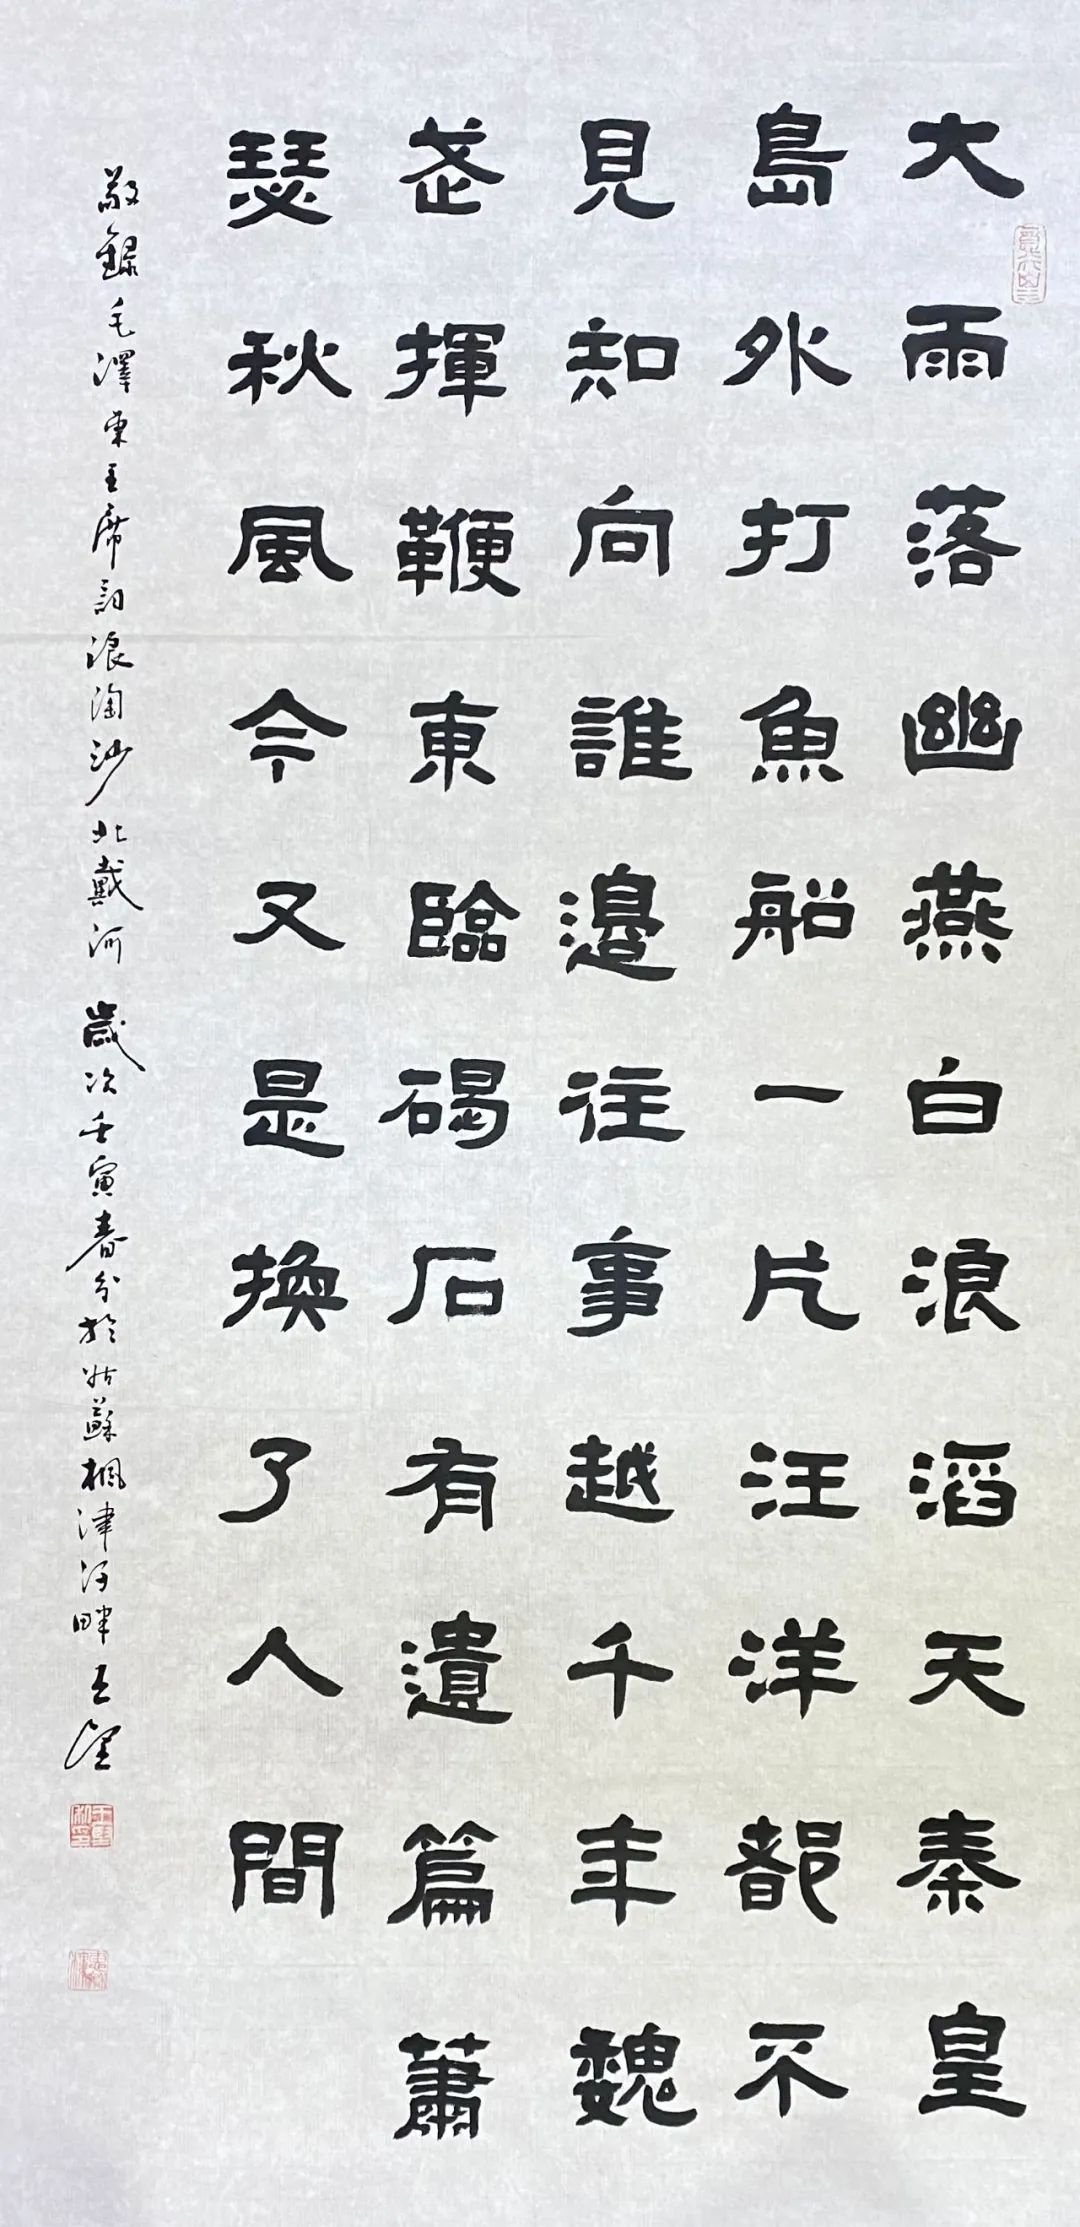 大雨落幽燕白浪滔天秦皇
島外打魚船一片汪洋都不
見知向誰邊往事越千年魏
武揮鞭東臨碣石有遺篇蕭
瑟秋風今又是換了人間
敬錄毛澤東主席詞浪淘沙北戴河 歲次壬寅春分於姑蘇楓津河畔王